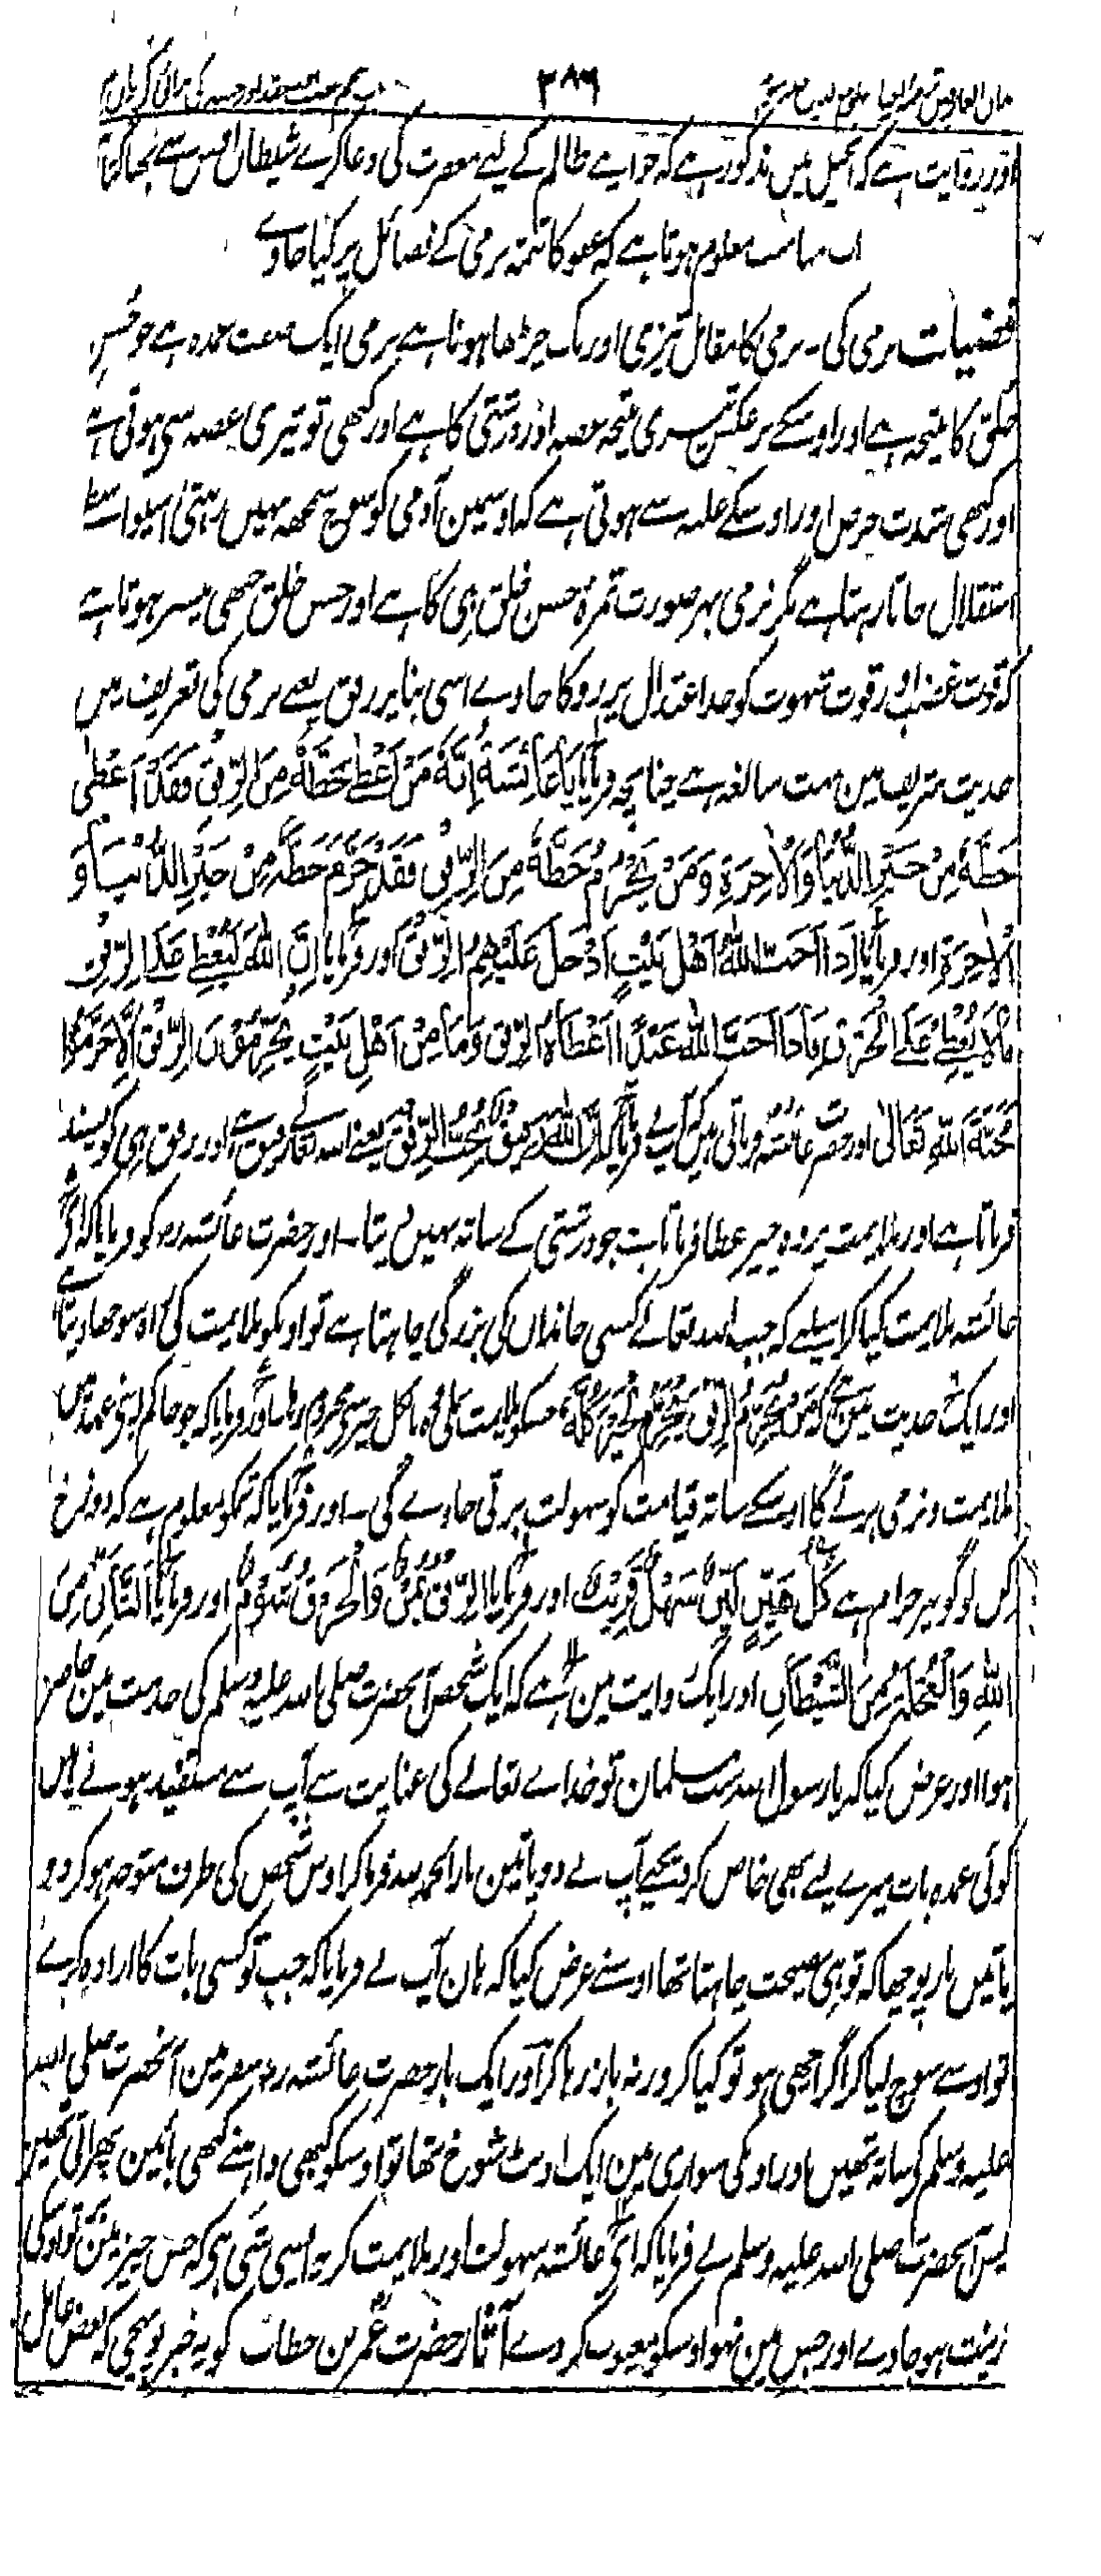 ۳۸۹
اور روایت ہے کہ انجیل میں مذکور ہے کہ جو اپنے ظالم کے لیے مغفرت کی دعا کرے شیطان اوس سے بھاگتا
اب مناسب معلوم ہوتا ہے کہ عفو کا تتمہ نرمی کے فضائل پر کیا جاوے
فضیلت نرمی کی ۔ نرمی کا مقابل تیزی اور ناک چڑھا ہونا ہے نرمی ایک صفت عمدہ ہے جو حسن
خلق کا نتیجہ ہے اور اوسکے برعکس تیزی نتیجہ غصہ اور درشتی کا ہے اور کبھی تو تیزی غصہ سے ہوتی ہے
اور کبھی شدت حرص اور اوسکے غلبہ سے ہوتی ہے کہ اوسمین آدمی کو سوچ سمجھ نہیں رہتی اسیواسطے
استقلال جاتا رہتا ہے مگر نرمی بہر صورت ثمرہ حسن خلق ہی کا ہے اور حسن خلق جبھی میسر ہوتا ہے
کہ قوت غضب اور قوت شہوت کو حد اعتدال پر روکا جاوے اسی بنا پر رفق یعنے نرمی کی تعریف میں
حدیث شریف مین بہت مبالغہ ہے چنانچہ فرمایا یَا عَائِشَةُ إِنَّهُ مَنْ أُعْطِيَ حَظَّهُ مِنَ الرِّفْقِ فَقَدْ أُعْطِيَ
حَظَّهُ مِنْ خَيْرِ الدُّنْيَا وَالْآخِرَةِ وَمَنْ يُحْرَمُ حَظَّهُ مِنَ الرِّفْقِ فَقَدْ حُرِمَ حَظَّهُ مِنْ خَيْرِ الدُّنْيَا وَ
الْآخِرَةِ اور فرمایا إِذَا أَحَبَّ اللّٰهُ أَهْلَ بَيْتٍ أَدْخَلَ عَلَيْهِمُ الرِّفْقَ اور فرمایا إِنَّ اللّٰهَ لَيُعْطِي عَلَى الرِّفْقِ
مَا لَا يُعْطِي عَلَى الْخُرْقِ وَإِذَا أَحَبَّ اللّٰهُ عَبْدًا أَعْطَاهُ الرِّفْقَ وَمَا مِنْ أَهْلِ بَيْتٍ يُحْرَمُوْنَ الرِّفْقَ إِلَّا حُرِمُوا
مَحَبَّةَ اللّٰهِ تَعَالٰى اور حضرت عائشہ فرماتی ہیں کہ آپ نے فرمایا کہ إِنَّ اللّٰهَ رَفِيْقٌ يُحِبُّ الرِّفْقَ یعنے اللہ تعالے رفیق ہے اور رفق ہی کو پسند
فرماتا ہے اور ملایمت پر وہ چیز عطا فرماتا ہے جو درشتی کے ساتہ نہیں دیتا ۔ اور حضرت عائشہ رض کو فرمایا کہ اے
عائشہ ملایمت کیا کر اسلیے کہ جب اللہ تعالے کسی خاندان کی بزرگی چاہتا ہے تو اونکو ملایمت کی راہ سوجھا دیتا ہے
اور ایک حدیث میں ہے کہ مَنْ يُحْرَمُ الرِّفْقَ يُحْرَمُ الْخَيْرَ كُلَّهُ جسکو ملایمت نملی وہ بالکل خیر سے محروم رہا اور فرمایا کہ جو حاکم اپنے عہد میں
ملایمت و نرمی برتے گا اوسکے ساتہ قیامت کو سہولت برتی جاوے گی ۔ اور فرمایا کہ تمکو معلوم ہے کہ دوزخ
کس لوگو پر حرام ہے كُلُّ هَيِّنٍ لَيِّنٍ سَهْلٍ قَرِيْبٍ اور فرمایا الرِّفْقُ يُمْنٌ وَالْخُرْقُ شُؤْمٌ اور فرمایا التَّأَنِّي مِنَ
اللّٰهِ وَالْعَجَلَةُ مِنَ الشَّيْطَانِ اور ایک روایت مین ہے کہ ایک شخص آنحضرت صلی اللہ علیہ وسلم کی خدمت مین حاضر
ہوا اور عرض کیا کہ یا رسول اللہ سب مسلمان تو خداے تعالے کی عنایت سے آپ سے مستفید ہوتے ہیں
کوئی عمدہ بات میرے لیے بھی خاص کر دیجیے آپ نے دو یا تین بار الحمد للہ فرما کر اوس شخص کی طرف متوجہ ہو کر دو
یا تین بار پوچھا کہ تو ہی نصیحت چاہتا تھا اوسنے عرض کیا کہ ہان آپ نے فرمایا کہ جب تو کسی بات کا ارادہ کرے
تو اوسے سوچ لیا کر اگر اچھی ہو تو کیا کر ورنہ باز رہا کر اور ایک بار حضرت عائشہ رض سفر مین آنحضرت صلی اللہ
علیہ وسلم کے ساتہ تھیں اور اونکی سواری مین ایک اونٹ شوخ تھا تو اوسکو کبھی داہنے کبھی بائین پھراتی تھین
پس آنحضرت صلی اللہ علیہ وسلم نے فرمایا کہ اے عائشہ سہولت اور ملایمت کر یہ ایسی شی ہے کہ جس چیز مین ہو تو اوسکی
زینت ہو جاوے اور جس مین نہو اوسکو معیوب کر دے آثار حضرت عمر بن خطاب کو یہ خبر پہونچی کہ بعض عامل